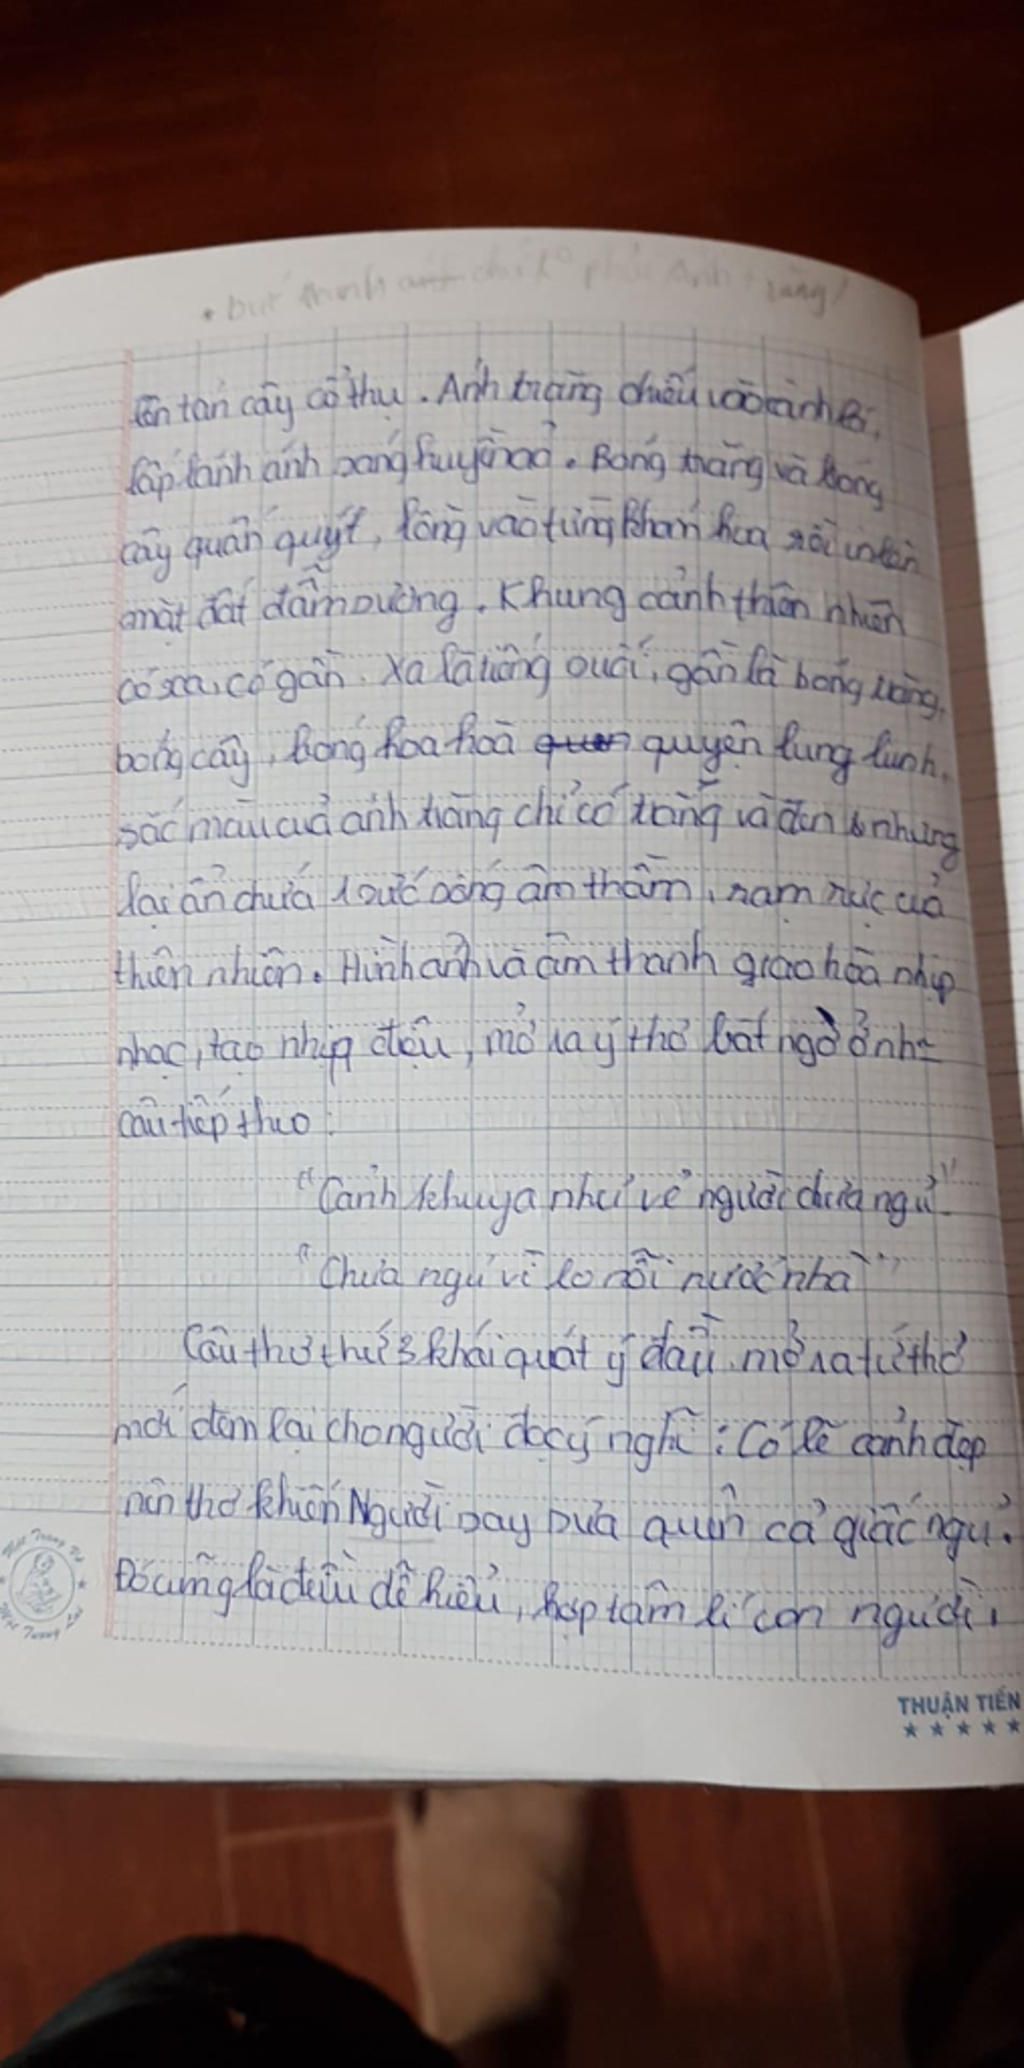 lên tán cây cổ thụ. Ánh trăng chiếu vào cành lá,
lấp lánh ánh sáng huyền ảo. Bóng trăng và bóng
cây quấn quýt, lồng vào từng khóm hoa rồi in lên
mặt đất đẫm sương. Khung cảnh thiên nhiên
có xa, có gần. Xa là tiếng suối, gần là bóng trăng,
bóng cây, bóng hoa hoà quyện lung linh.
sắc màu của ánh trăng chỉ có trắng và đen nhưng
lại ẩn chứa 1 sức sống âm thầm, rạo rực của
thiên nhiên. Hình ảnh và âm thanh giao hòa nhịp
nhạc, tạo nhịp điệu, mở ra ý thơ bất ngờ ở
câu tiếp theo:
"Cảnh khuya như vẽ người chưa ngủ"
"Chưa ngủ vì lo nỗi nước nhà"
Câu thơ thứ 3 khái quát ý đầu mở ra tứ thơ
mới đem lại cho người đọc ý nghĩ: Có lẽ cảnh đẹp
nên thơ khiến Người say sưa quên cả giấc ngủ.
Đó cũng là điều dễ hiểu, hợp tâm lí con người,
THUẬN TIẾN